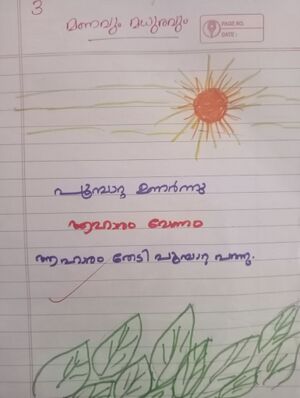 3
മണവും മധുരവും
PAGE NO.
DATE :
പൂമ്പാറ്റ ഉണർന്നു
ആഹാരം വേണം
ആഹാരം തേടി പൂമ്പാറ്റ പറന്നു.